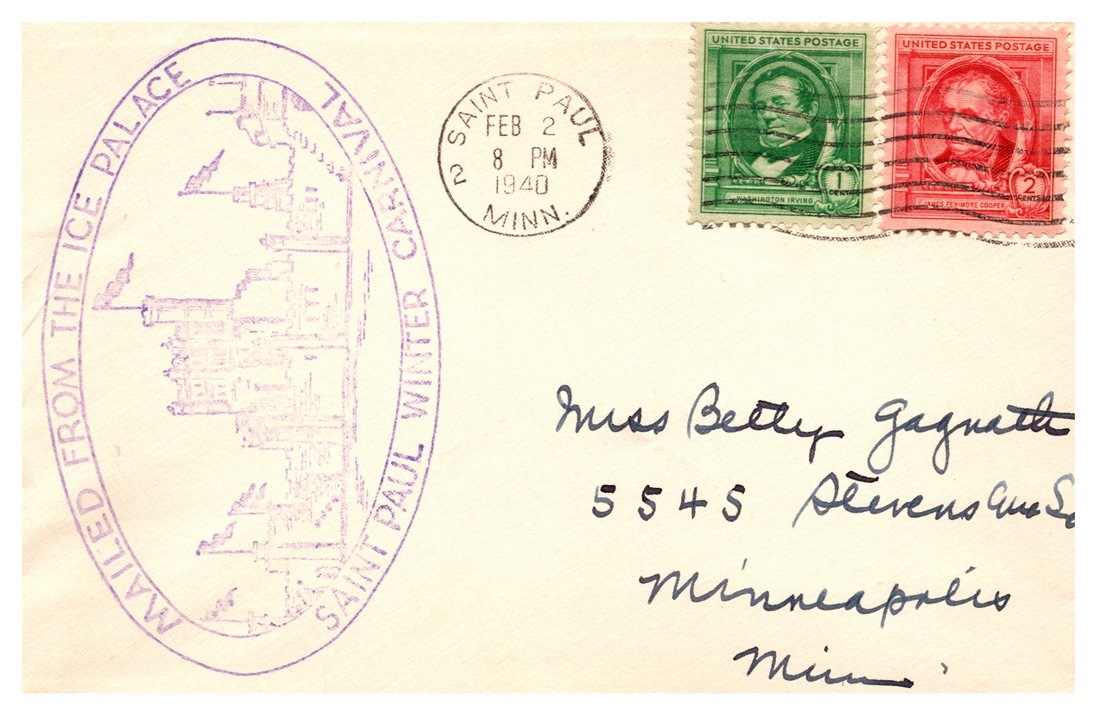 MAILED FROM THE ICE PALACE
SAINT PAUL WINTER CARNIVAL
SAINT PAUL
FEB 2
8 PM
1940
2 MINN.
UNITED STATES POSTAGE
1 CENT
WASHINGTON IRVING
UNITED STATES POSTAGE
2 CENTS
JAMES FENIMORE COOPER
Miss Betty Gagnath
5545 Stevens Ave So
Minneapolis
Minn.